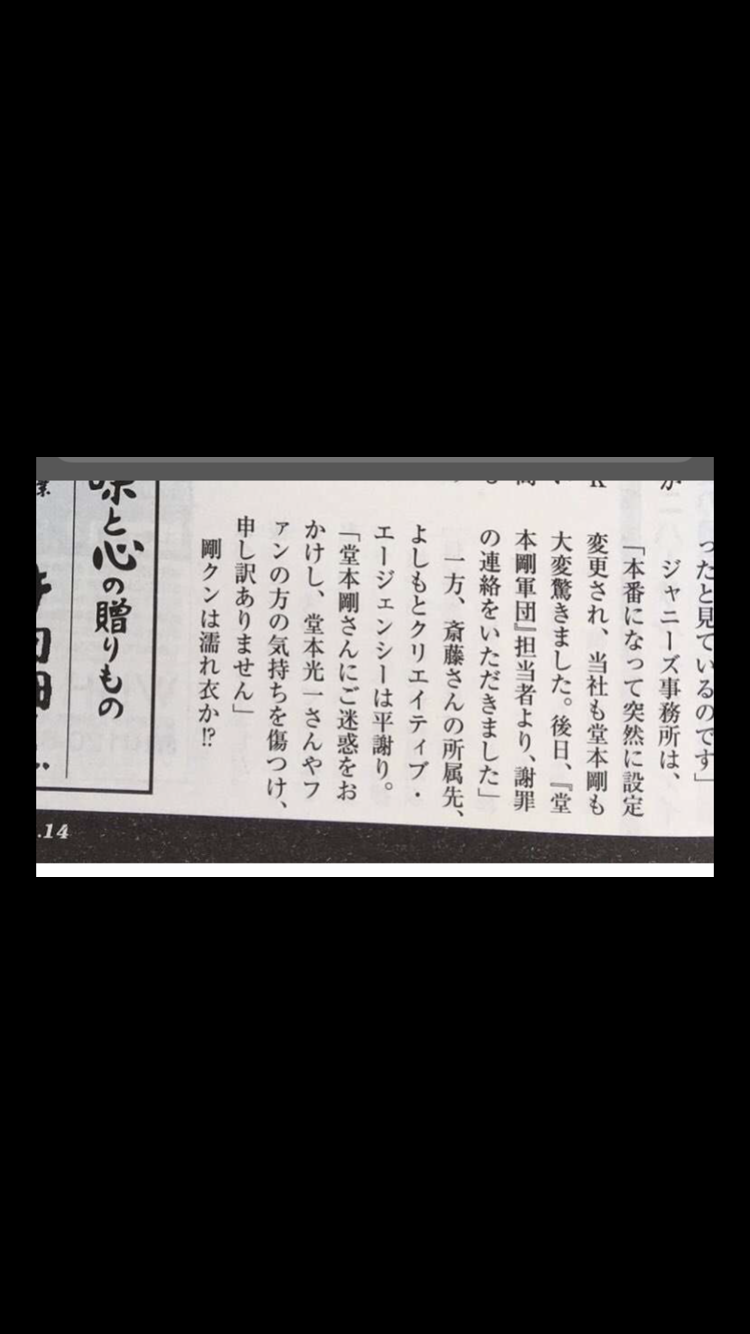 ったと見ているのです」
ジャニーズ事務所は、
「本番になって突然に設定
変更され、当社も堂本剛も
大変驚きました。後日、『堂
本剛軍団』担当者より、謝罪
の連絡をいただきました」
一方、斎藤さんの所属先、
よしもとクリエイティブ・
エージェンシーは平謝り。
「堂本剛さんにご迷惑をお
かけし、堂本光一さんやフ
ァンの方の気持ちを傷つけ、
申し訳ありません」
剛クンは濡れ衣か⁉
味と心の贈りもの
.14